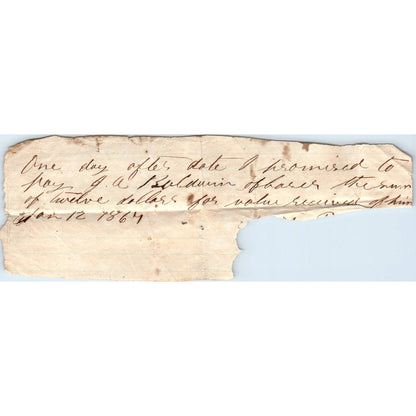 One day after date I promised to
pay J. A Baldwin of bearer the sum
of twelve dollars for value received of him
Jan 12 1867